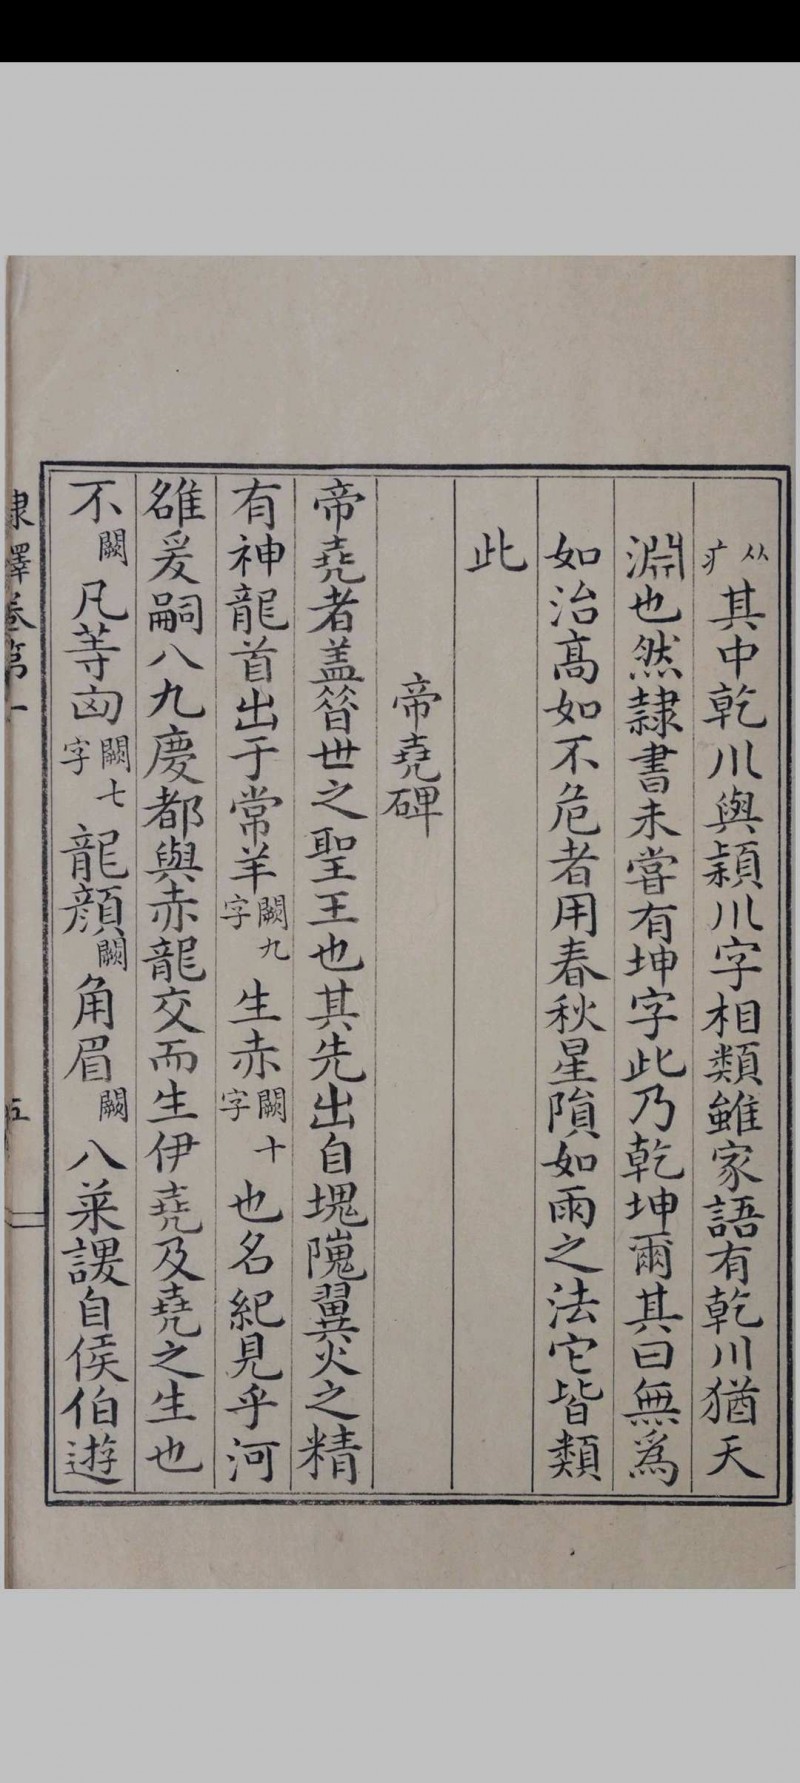 从疒其中乾川與潁川字相類雖家語有乾川猶天
淵也然隸書未嘗有坤字此乃乾坤爾其曰無爲
如治高如不危者用春秋星隕如雨之法它皆類
此
帝堯碑
帝堯者盖昝世之聖王也其先出自塊隗翼火之精
有神龍首出于常羊闕九字生赤闕十字也名紀見乎河
雒爰嗣八九慶都與赤龍交而生伊堯及堯之生也
不闕凡等囟闕七字龍顏闕角眉闕八菜謖自侯伯遊
隸釋卷第一
五